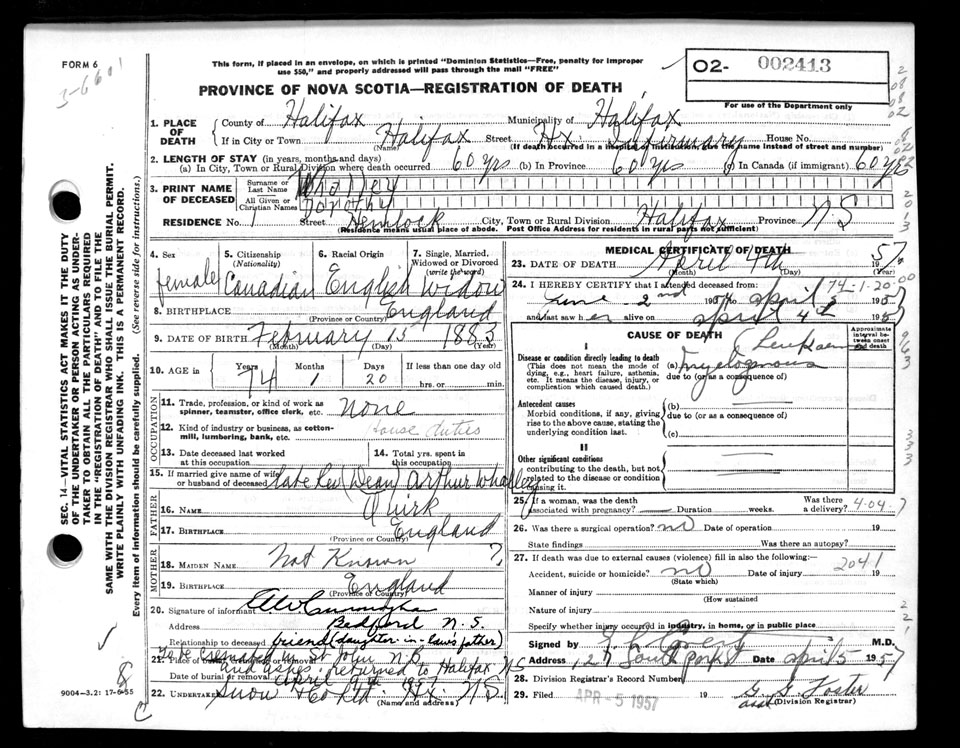 FORM 6
3-6601
This form, if placed in an envelope, on which is printed "Dominion Statistics—Free, penalty for improper
use $50," and properly addressed will pass through the mail "FREE"
02- 002413
For use of the Department only
PROVINCE OF NOVA SCOTIA—REGISTRATION OF DEATH
1. PLACE OF DEATH
County of Halifax Municipality of Halifax
If in City or Town Halifax Street Hx. Infirmary House No.
(Name) (If death occurred in a hospital or institution, give the name instead of street and number)
2. LENGTH OF STAY (in years, months and days)
(a) In City, Town or Rural Division where death occurred 60 yrs (b) In Province 60 yrs (c) In Canada (if immigrant) 60 yrs
3. PRINT NAME OF DECEASED
Surname or Last Name Whalley
All Given or Christian Names Dorothy
RESIDENCE No. 1 Street Hemlock City, Town or Rural Division Halifax Province NS
(Residence means usual place of abode. Post Office Address for residents in rural parts not sufficient)
4. Sex
female
5. Citizenship
(Nationality)
Canadian
6. Racial Origin
English
7. Single, Married,
Widowed or Divorced
(write the word)
Widow
8. BIRTHPLACE England
(Province or Country)
9. DATE OF BIRTH February 15 1883
(Month) (Day) (Year)
10. AGE in
Years Months Days If less than one day old
74 1 20 hrs. or min.
OCCUPATION
11. Trade, profession, or kind of work as
spinner, teamster, office clerk, etc. None
12. Kind of industry or business, as cotton-
mill, lumbering, bank, etc. House duties
13. Date deceased last worked
at this occupation
14. Total yrs. spent in
this occupation
15. If married give name of wife
or husband of deceased late Rev (Dean) Arthur Whalley
FATHER
16. Name Quirk
17. Birthplace England
(Province or Country)
MOTHER
18. Maiden Name Not Known ?
19. Birthplace England
(Province or Country)
20. Signature of informant Cunningham
Address Bedford N.S.
Relationship to deceased friend (daughter-in-law's father)
to be cremated in St John N.B.
21. Place of burial, cremation or removal
and ashes returned to Halifax NS
Date of burial or removal April 9th 1957
22. Undertaker Snow & Co Ltd. Hx. N.S.
(Name and address)
MEDICAL CERTIFICATE OF DEATH
23. DATE OF DEATH April 4th 57
(Month) (Day) (Year)
74-1-20
24. I HEREBY CERTIFY that I attended deceased from:
June 2nd 195 to April 3 195
and last saw her alive on April 4th 195
CAUSE OF DEATH
Approximate interval between onset and death
I
Disease or condition directly leading to death
(This does not mean the mode of
dying, e.g., heart failure, asthenia,
etc. It means the disease, injury, or
complication which caused death.)
Leukaemia
(a) myelogenous
due to (or as a consequence of)
Antecedent causes
Morbid conditions, if any, giving
rise to the above cause, stating the
underlying condition last.
(b)
due to (or as a consequence of)
(c)
II
Other significant conditions
contributing to the death, but not
related to the disease or condition
causing it.
25. If a woman, was the death
associated with pregnancy? — Duration weeks. Was there
a delivery?
404
26. Was there a surgical operation? no Date of operation 19
State findings Was there an autopsy?
27. If death was due to external causes (violence) fill in also the following:—
2041
Accident, suicide or homicide? no Date of injury 19
(State which)
Manner of injury
(How sustained
Nature of injury
Specify whether injury occurred in industry, in home, or in public place
Signed by M.D.
Address South Park St Date April 5 1957
28. Division Registrar's Record Number
29. Filed APR -5 1957 19 G. G. Foster
(Division Registrar)
SEC. 14—VITAL STATISTICS ACT MAKES IT THE DUTY
OF THE UNDERTAKER OR PERSON ACTING AS UNDER-
TAKER TO OBTAIN ALL THE PARTICULARS REQUIRED
IN THE "REGISTRATION OF DEATH" AND TO FILE THE
SAME WITH THE DIVISION REGISTRAR WHO SHALL ISSUE THE BURIAL PERMIT.
WRITE PLAINLY WITH UNFADING INK. THIS IS A PERMANENT RECORD.
Every item of information should be carefully supplied. (See reverse side for instructions.)
9004-3.2: 17-6-55